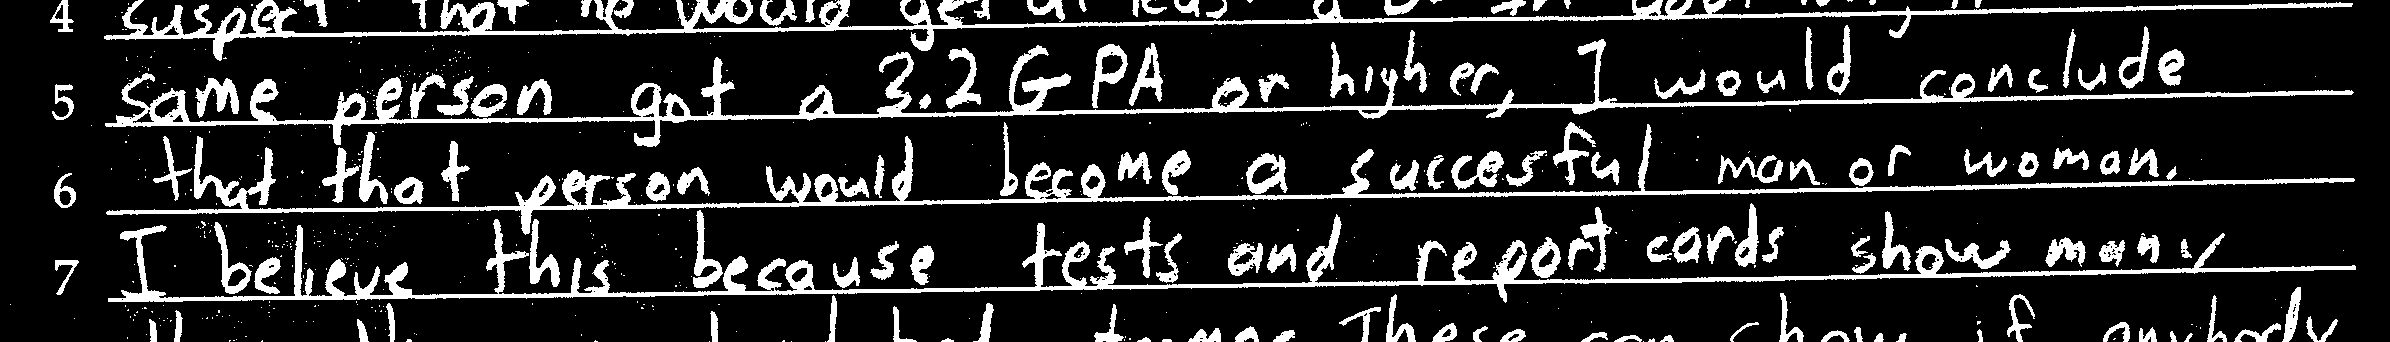 4 suspect that he would get at least a
5 same person got a 3.2 GPA or higher, I would conclude
6 that that person would become a succesful man or woman.
7 I believe this because tests and report cards show many
These can show if anybody